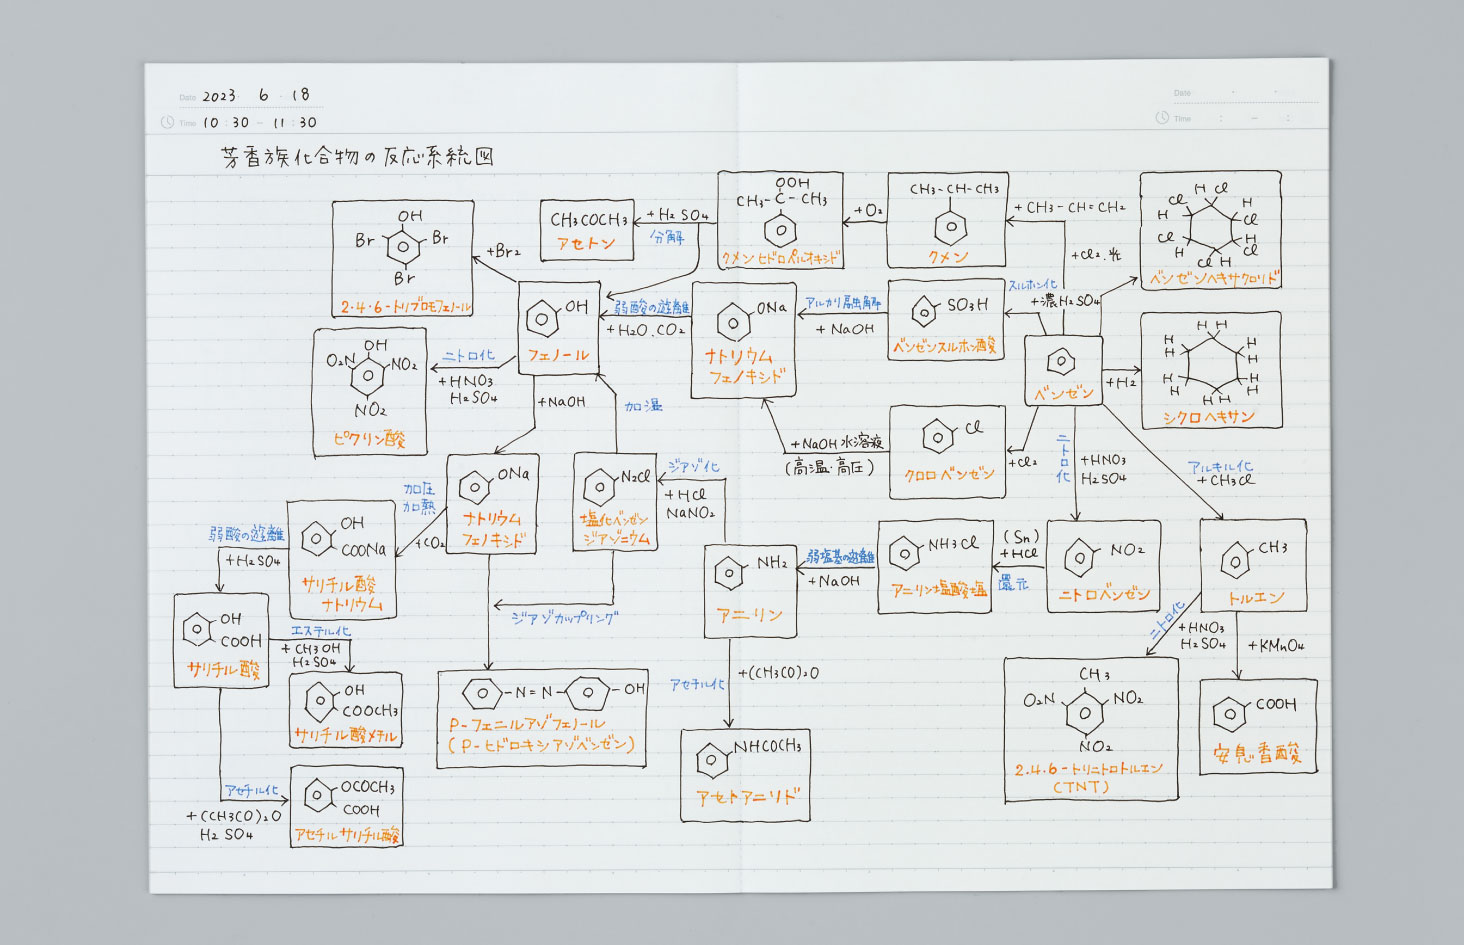 Date 2023 6 18
Time 10:30 - 11:30
Date
Time : - :
芳香族化合物の反応系統図
OH
Br
Br
Br
2.4.6-トリブロモフェノール
+Br2
CH3COCH3
アセトン
+H2SO4
分解
OOH
CH3-C-CH3
クメンヒドロペルオキシド
+O2
CH3-CH-CH3
クメン
+CH3-CH=CH2
+Cl2.光
H Cl
Cl
H
H
Cl
Cl
H
H
Cl
Cl H
ベンゼンヘキサクロリド
O2N
OH
NO2
NO2
ピクリン酸
ニトロ化
+HNO3
H2SO4
OH
フェノール
弱酸の遊離
+H2O.CO2
ONa
ナトリウム
フェノキシド
アルカリ融解
+NaOH
SO3H
ベンゼンスルホン酸
スルホン化
+濃H2SO4
ベンゼン
+H2
H H
H
H
H
H
H
H
H
H
H H
シクロヘキサン
+NaOH
加温
+NaOH水溶液
(高温・高圧)
Cl
クロロベンゼン
+Cl2
ニトロ化
+HNO3
H2SO4
アルキル化
+CH3Cl
弱酸の遊離
+H2SO4
OH
COONa
サリチル酸
ナトリウム
加圧
加熱
+CO2
ONa
ナトリウム
フェノキシド
N2Cl
塩化ベンゼン
ジアゾニウム
ジアゾ化
+HCl
NaNO2
NH2
アニリン
弱塩基の遊離
+NaOH
NH3Cl
アニリン塩酸塩
(Sn)
+HCl
還元
NO2
ニトロベンゼン
CH3
トルエン
OH
COOH
サリチル酸
エステル化
+CH3OH
H2SO4
OH
COOCH3
サリチル酸メチル
ジアゾカップリング
-N=N-
-OH
P-フェニルアゾフェノール
(P-ヒドロキシアゾベンゼン)
アセチル化
+(CH3CO)2O
NHCOCH3
アセトアニリド
ニトロ化
+HNO3
H2SO4
+KMnO4
CH3
O2N
NO2
NO2
2.4.6-トリニトロトルエン
(TNT)
COOH
安息香酸
アセチル化
+(CH3CO)2O
H2SO4
OCOCH3
COOH
アセチルサリチル酸